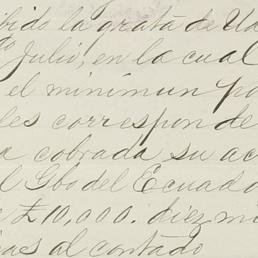 bido la grata de Ud
Julio, en la cual
el minimun po
les correspon de
a cobrada su ac
l Gbo del Ecuado
£10,000. diez mi
as al contado